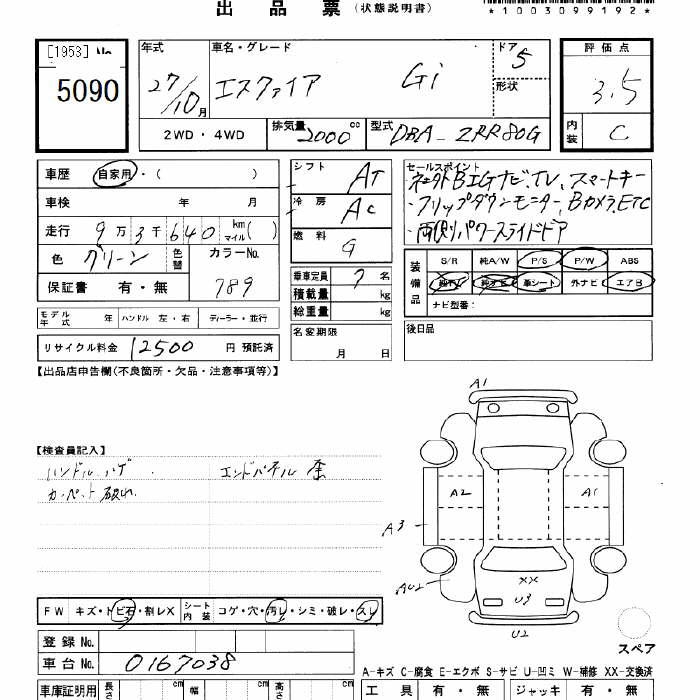 出品票 (状態説明書)
*1003099192*
[1953] No.
5090
年式
27/10月
車名・グレード
エスクァイア Gi
ドア
5
形状
評価点
3.5
内装
C
2WD・4WD
排気量 2000 cc
型式 DBA-ZRR80G
車歴 自家用・( )
車検 年 月
走行 9万3千640 km マイル( )
色 グリーン 色替
カラーNo. 789
保証書 有・無
シフト AT
冷房 AC
燃料 G
乗車定員 7名
積載量 kg
総重量 kg
名変期限
月 日
セールスポイント
・フリップダウンモニター、Bカメラ、ETC
・両側パワースライドドア
装備品
S/R 純A/W P/S P/W ABS
純TV 純ナビ 革シート 外ナビ エアB
ナビ型番:
後日品
モデル年式 年 ハンドル 左・右 ディーラー・並行
リサイクル料金 12500 円 預託済
【出品店申告欄(不良箇所・欠品・注意事項等)】
【検査員記入】
ハンドル ハゲ
エンドパネル 歪
カーペット 破れ
A1
A2
A1
A3
AU2
XX
U3
U2
スペア
FW キズ・トビ石・割レX
シート内装 コゲ・穴・汚レ・シミ・破レ・スレ
登録No.
車台No. 0167038
A-キズ C-腐食 E-エクボ S-サビ U-凹ミ W-補修 XX-交換済
車庫証明用 長さ cm 幅 cm 高さ cm
工具 有・無 ジャッキ 有・無